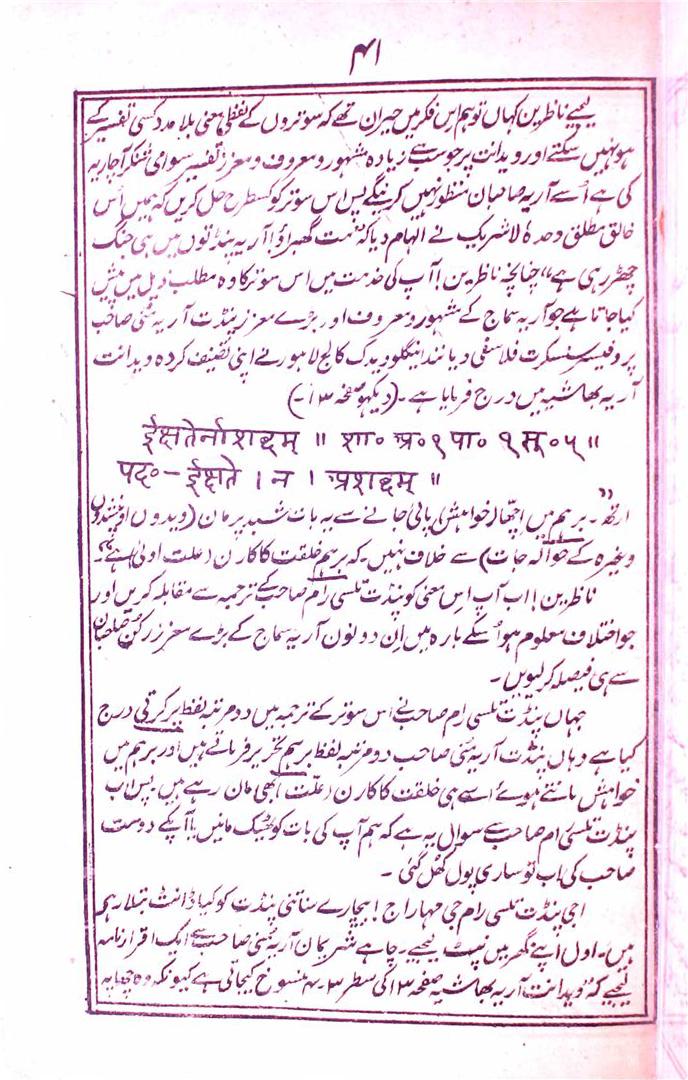 ۴۱
لیجیے ناظرین کہاں تو ہم اس فکر میں حیران تھے کہ سوتروں کے لفظی معنی بلا مدد کسی تفسیر کے
ہو نہیں سکتے اور ویدانت پر جو سب سے زیادہ مشہور و معروف و معزز تفسیر سوامی شنکر آچاریہ
کی ہے اُسے آریہ صاحبان منظور نہیں کرینگے پس اس سوتر کو کسطرح حل کریں کہ ہمیں اُس
خالق مطلق وحدہٗ لاشریک نے الہام دیا کہ ”مت گھبراؤ! آریہ پنڈتوں میں ہی جنگ
چھڑ رہی ہے“ چنانچہ ناظرین! آپ کی خدمت میں اس سوتر کا وہ مطلب ذیل میں پیش
کیا جاتا ہے جو آریہ سماج کے مشہور و معروف اور بڑے معزز پنڈت آریہ منی صاحب
پروفیسر سنسکرت فلاسفی دیانند اینگلو ویدک کالج لاہور نے اپنی تصنیف کردہ ویدانت
آریہ بھاشیہ میں درج فرمایا ہے۔ (دیکھو صفحہ ۱۳۔)
ईक्षतेर्नाशब्दम् ॥ शा० अ० १ पा० १ सू० ५ ॥
पद० - ईक्षते । न । अशब्दम् ॥
”ارتھ۔ برہم میں اِچھا (خواہش) پائی جانے سے یہ بات شبد پرمان (ویدوں اوپنشدوں
وغیرہ کے حوالہ جات) سے خلاف نہیں۔ کہ برہم خلقت کا کارن (علت اولیٰ) ہے“۔
ناظرین! اب آپ اس معنی کو پنڈت تلسی رام صاحب کے ترجمہ سے مقابلہ کریں اور
جو اختلاف معلوم ہو اُسکے بارہ میں اِن دونوں آریہ سماج کے بڑے معزز رکن صاحبان
سے ہی فیصلہ کر لیویں۔
جہاں پنڈت تلسی رام صاحب نے اس سوتر کے ترجمہ میں دو مرتبہ لفظ پرکرتی درج
کیا ہے وہاں پنڈت آریہ منی صاحب دو مرتبہ لفظ برہم تحریر فرماتے ہیں اور برہم میں
خواہش مانتے ہوئے اسے ہی خلقت کا کارن (علّت) بھی مان رہے ہیں۔ پس اب
پنڈت تلسی رام صاحب سے سوال یہ ہے کہ ہم آپ کی بات کو ٹھیک مانیں یا آپکے دوست
صاحب کی اب تو ساری پول کھل گئی۔
اجی پنڈت تلسی رام جی مہاراج! بیچارے سناتنی پنڈت کو کیا ڈانٹ بتلا رہے
ہیں۔ اول اپنے گھر میں نپٹ لیجیے۔ چاہے شریمان آریہ منی صاحب سے ایک اقرار نامہ
لیجیے کہ ”ویدانت آریہ بھاشیہ صفحہ ۱۳ کی سطر ۳۔۴ منسوخ کیجاتی ہے کیونکہ وہ چھاپہ